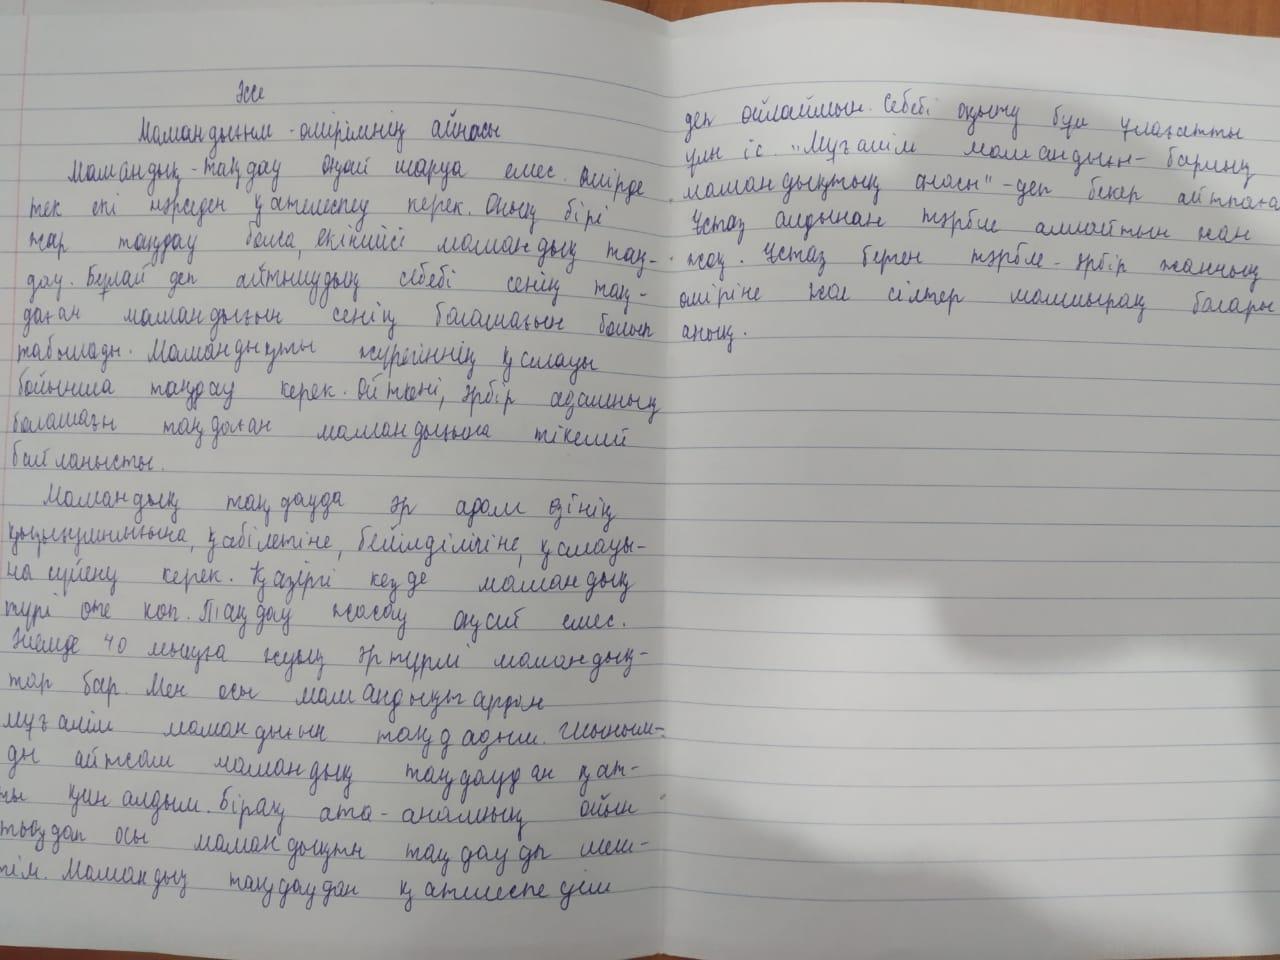 Эссе
Мамандығым - өмірімнің айнасы
Мамандық - таңдау оңай шаруа емес. Өмірде
тек екі нәрседен қателеспеу керек. Оның бірі
жар таңдау болса, екіншісі мамандық таң-
дау. Бұлай деп айтылудың себебі сенің таң-
даған мамандығың сенің болашағың болып
табылады. Мамандықты жүрегіннің қалауы
бойынша таңдау керек. Өйткені, әрбір адамның
болашағы таңдаған мамандығына тікелей
байланысты.
Мамандық таңдауда әр адам өзінің
қызығушылығына, қабілетіне, бейімділігіне, қалауы-
на сүйену керек. Қазіргі кезде мамандық
түрі өте көп. Таңдау жасау оңай емес.
Әлемде 40 мыңға жуық әртүрлі мамандық-
тар бар. Мен осы мамандықтардан
мұғалім мамандығын таңдадым. Шыным-
ды айтсам мамандық таңдаудан қат-
ты қиналдым. Бірақ ата-анамның ойын
тыңдап осы мамандықты таңдауды шеш-
тім. Мамандық таңдаудан қателеспедім
деп ойлаймын. Себебі оқыту бұл ұлағатты
ұлы іс. "Мұғалім мамандығы - барлық
мамандықтың анасы" - деп бекер айтпаған
Ұстаз алдынан тәрбие алмайтын жан
жоқ. Ұстаз берген тәрбие - әрбір жанның
өміріне жол сілтер шамшырақ болары
анық.